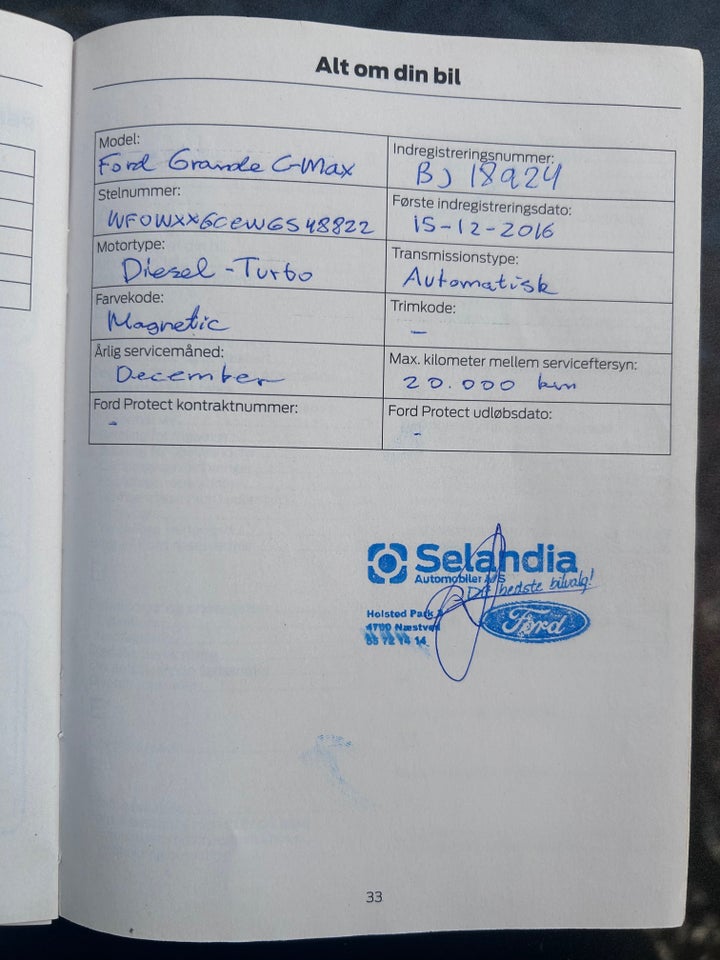 Alt om din bil
Model:
Ford Grande C-Max
Indregistreringsnummer:
BJ 18924
Stelnummer:
WF0WXXGCEWGS48822
Første indregistreringsdato:
15-12-2016
Motortype:
Diesel - Turbo
Transmissionstype:
Automatisk
Farvekode:
Magnetic
Trimkode:
-
Årlig servicemåned:
December
Max. kilometer mellem serviceftersyn:
20.000 km
Ford Protect kontraktnummer:
-
Ford Protect udløbsdato:
-
Selandia
Automobiler A/S
Det bedste bilvalg!
Holsted Park
4700 Næstved
55 72 14 14
Ford
33